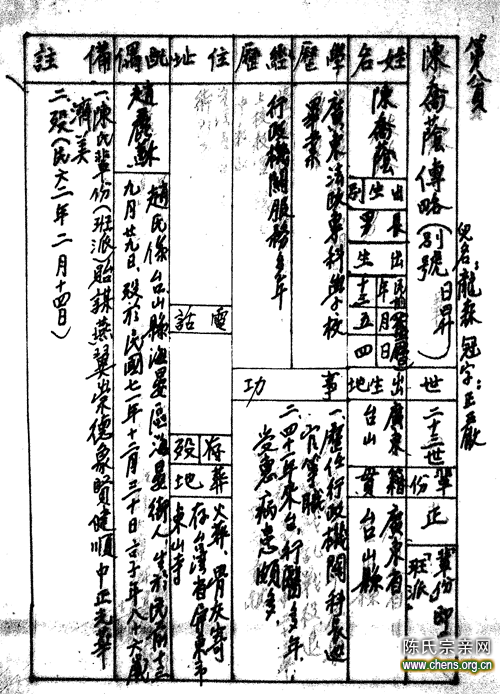 第八頁
兒名：龍森 冠字：正
陳喬蔭傳略（別號 日昇）
世 二十三世
輩份 正
輩份即
「班派」
姓名 陳喬蔭
性別 男
出生 年月日
十三 五 四
出生地 廣東
台山
籍貫 廣東省
台山縣
學歷 廣東法政專科學校
畢業
經歷 行政機關服務多年
事功
一、歷任行政機關科長
官等職
二、四十一年來台行醫多年，
受惠病患頗多
住址
電話
存歿
葬地 火葬、骨灰寄
存台灣省屏東市
東山寺
配偶 趙
趙氏係台山縣海晏區海晏街人 生於民前十三
九月廿九日、歿於民國七一年十二月三十日 享年八十六歲
備註
一、陳氏輩份（班派）貽謀燕翼崇德象賢健順中正光華
濟美
二、歿（民六二年二月十四日）
陈氏宗亲网
www.chens.org.cn